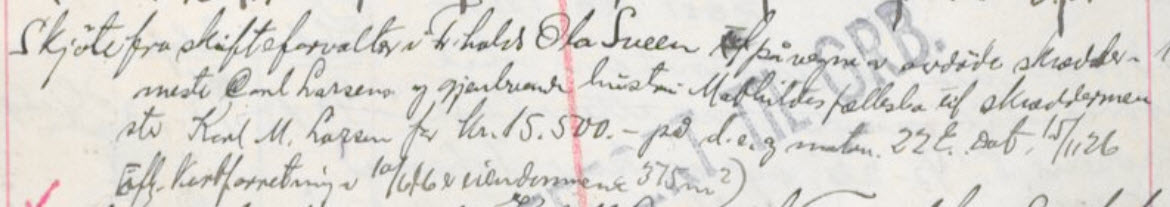 Skjöte fra skifteforvalter i Fr.hald Ola Sveen på vegne av avdöde skrædder-
mester Carl Larsens og gjenlevende hustru Mathildes fællesbo til skræddermes
ster Karl M. Larsen for kr. 15.500.- på d.e.g matr. 22 E. Dat. 15/1 1926
(Efter kartforretning av 10/6 16 er eiendommene 375 m²)
OVERFØRT TIL GRB.